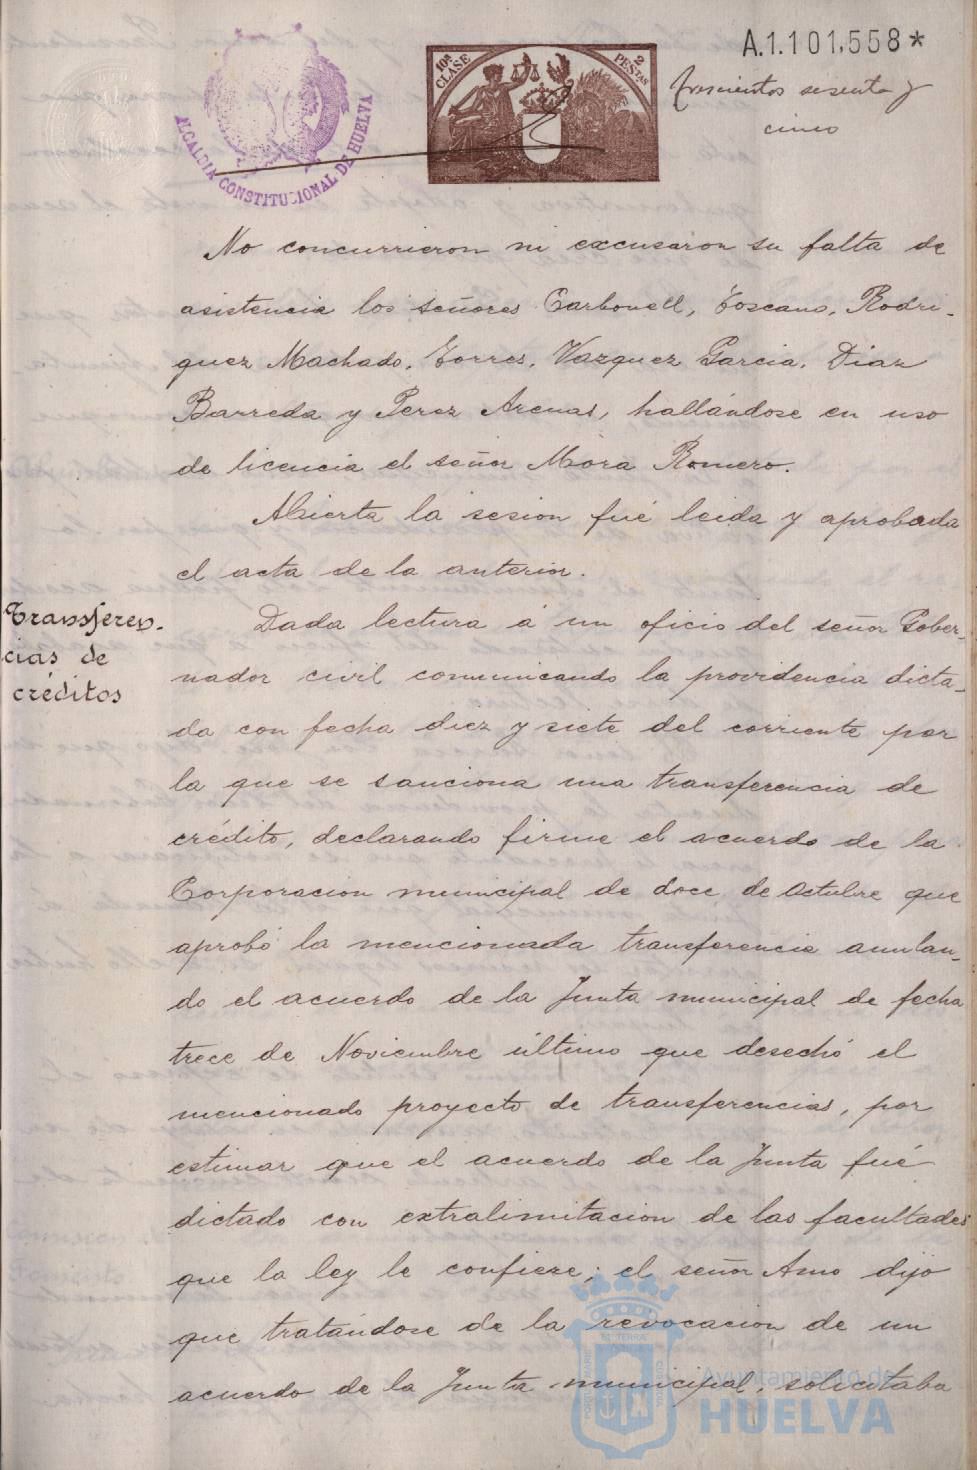 A.1.101,558*
10ª CLASE
2 PESTAS
trescientos sesenta y
cinco
ALCALDIA CONSTITUCIONAL DE HUELVA
No concurrieron ni excusaron su falta de
asistencia los señores Carbonell, Toscano, Rodri-
guez Machado, Torres, Vazquez Garcia, Diaz
Barreda y Perez Arenas, hallándose en uso
de licencia el señor Mora Romero.
Abierta la sesion fué leida y aprobada
el acta de la anterior.
Transferen-
cias de
créditos
Dada lectura á un oficio del señor Gober-
nador civil comunicando la providencia dicta-
da con fecha diez y siete del corriente por
la que se sanciona una transferencia de
crédito, declarando firme el acuerdo de la
Corporacion municipal de doce de Octubre que
aprobó la mencionada transferencia anulan-
do el acuerdo de la Junta municipal de fecha
trece de Noviembre último que desechó el
mencionado proyecto de transferencias, por
estimar que el acuerdo de la Junta fué
dictado con extralimitacion de las facultades
que la ley le confiere; el señor Amo dijo
que tratándose de la revocacion de un
acuerdo de la Junta municipal, solicitaba
Ayuntamiento de
HUELVA